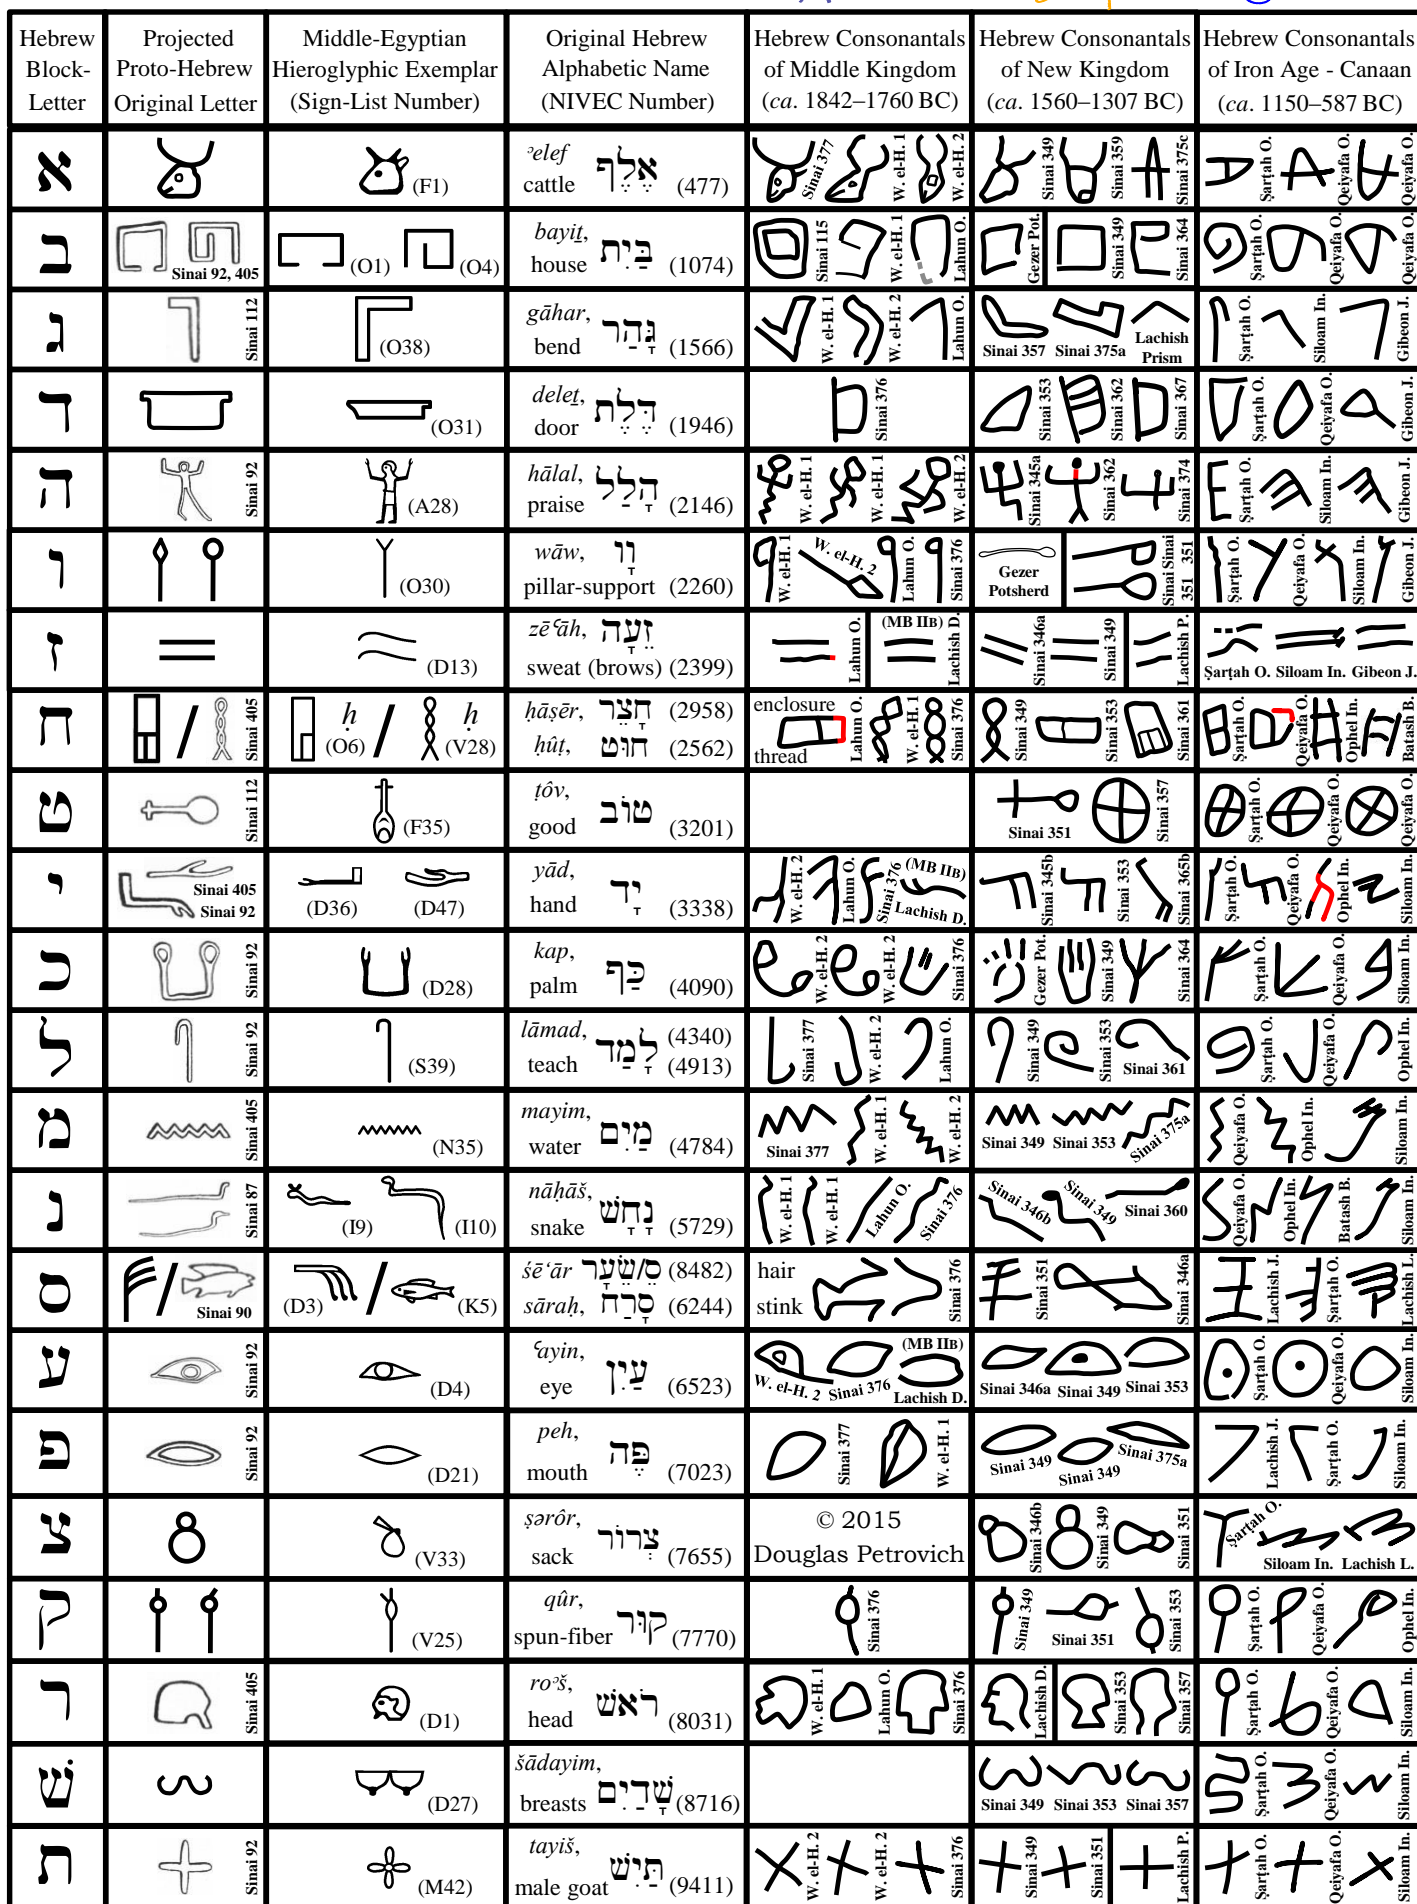 Hebrew Block-Letter
Projected Proto-Hebrew Original Letter
Middle-Egyptian Hieroglyphic Exemplar (Sign-List Number)
Original Hebrew Alphabetic Name (NIVEC Number)
Hebrew Consonantals of Middle Kingdom (ca. 1842–1760 BC)
Hebrew Consonantals of New Kingdom (ca. 1560–1307 BC)
Hebrew Consonantals of Iron Age - Canaan (ca. 1150–587 BC)
א (F1) ʾelef cattle אֶלֶף (477) Sinai 377 W. el-H. 1 W. el-H. 2 Sinai 349 Sinai 359 Sinai 375c Ṣarṭah O. Qeiyafa O. Qeiyafa O.
ב Sinai 92, 405 (O1) (O4) bayiṯ, house בַּיִת (1074) Sinai 115 W. el-H. 1 Lahun O. Gezer Pot. Sinai 349 Sinai 364 Ṣarṭah O. Qeiyafa O. Qeiyafa O.
ג Sinai 112 (O38) gāhar, bend גָּהַר (1566) W. el-H. 1 W. el-H. 2 Lahun O. Sinai 357 Sinai 375a Lachish Prism Ṣarṭah O. Siloam In. Gibeon J.
ד (O31) deleṯ, door דֶּלֶת (1946) Sinai 376 Sinai 353 Sinai 362 Sinai 367 Ṣarṭah O. Qeiyafa O. Gibeon J.
ה Sinai 92 (A28) hālal, praise הָלַל (2146) W. el-H. 1 W. el-H. 1 W. el-H. 2 Sinai 345a Sinai 362 Sinai 374 Ṣarṭah O. Siloam In. Gibeon J.
ו (O30) wāw, pillar-support וָו (2260) W. el-H. 1 W. el-H. 2 Lahun O. Sinai 376 Gezer Potsherd Sinai 351 Sinai 351 Ṣarṭah O. Qeiyafa O. Siloam In. Gibeon J.
ז (D13) zēʿāh, sweat (brows) זֵעָה (2399) Lahun O. (MB IIB) Lachish D. Sinai 346a Sinai 349 Lachish P. Ṣarṭah O. Siloam In. Gibeon J.
ח / Sinai 405 ḥ (O6) / ḥ (V28) ḥāṣēr, חָצֵר (2958) ḥûṭ, חוּט (2562) enclosure thread Lahun O. W. el-H. 1 Sinai 376 Sinai 349 Sinai 353 Sinai 361 Ṣarṭah O. Qeiyafa O. Ophel In. Batash B.
ט Sinai 112 (F35) ṭôv, good טוֹב (3201) Sinai 351 Sinai 357 Ṣarṭah O. Qeiyafa O. Qeiyafa O.
י Sinai 405 Sinai 92 (D36) (D47) yād, hand יָד (3338) W. el-H. 2 Lahun O. Sinai 376 (MB IIB) Lachish D. Sinai 345b Sinai 353 Sinai 365b Ṣarṭah O. Qeiyafa O. Ophel In. Siloam In.
כ Sinai 92 (D28) kap, palm כַּף (4090) W. el-H. 2 W. el-H. 2 Sinai 376 Gezer Pot. Sinai 349 Sinai 364 Ṣarṭah O. Qeiyafa O. Siloam In.
ל Sinai 92 (S39) lāmad, teach לָמַד (4340) (4913) Sinai 377 W. el-H. 2 Lahun O. Sinai 349 Sinai 353 Sinai 361 Ṣarṭah O. Qeiyafa O. Ophel In.
מ Sinai 405 (N35) mayim, water מַיִם (4784) Sinai 377 W. el-H. 1 W. el-H. 2 Sinai 349 Sinai 353 Sinai 375a Qeiyafa O. Ophel In. Siloam In.
נ Sinai 87 (I9) (I10) nāḥāš, snake נָחָשׁ (5729) W. el-H. 1 W. el-H. 1 Lahun O. Sinai 376 Sinai 346b Sinai 349 Sinai 360 Qeiyafa O. Ophel In. Batash B. Siloam In.
ס / Sinai 90 (D3) / (K5) śēʿār ס/שֵׂעָר (8482) sāraḥ, סָרַח (6244) hair stink Sinai 376 Sinai 351 Sinai 346a Lachish J. Ṣarṭah O. Lachish L.
ע Sinai 92 (D4) ʿayin, eye עַיִן (6523) W. el-H. 2 Sinai 376 (MB IIB) Lachish D. Sinai 346a Sinai 349 Sinai 353 Ṣarṭah O. Qeiyafa O. Siloam In.
פ Sinai 92 (D21) peh, mouth פֶּה (7023) Sinai 377 W. el-H. 1 Sinai 349 Sinai 349 Sinai 375a Lachish J. Ṣarṭah O. Siloam In.
צ (V33) ṣərôr, sack צְרוֹר (7655) © 2015 Douglas Petrovich Sinai 346b Sinai 349 Sinai 351 Ṣarṭah O. Siloam In. Lachish L.
ק (V25) qûr, spun-fiber קוּר (7770) Sinai 376 Sinai 349 Sinai 351 Sinai 353 Ṣarṭah O. Qeiyafa O. Ophel In.
ר Sinai 405 (D1) roʾš, head רֹאשׁ (8031) W. el-H. 1 Lahun O. Sinai 376 Lachish D. Sinai 353 Sinai 357 Ṣarṭah O. Qeiyafa O. Siloam In.
שׁ (D27) šādayim, breasts שָׁדַיִם (8716) Sinai 349 Sinai 353 Sinai 357 Ṣarṭah O. Qeiyafa O. Siloam In.
ת Sinai 92 (M42) tayiš, male goat תַּיִשׁ (9411) W. el-H. 2 W. el-H. 2 Sinai 376 Sinai 349 Sinai 351 Lachish P. Ṣarṭah O. Qeiyafa O. Siloam In.